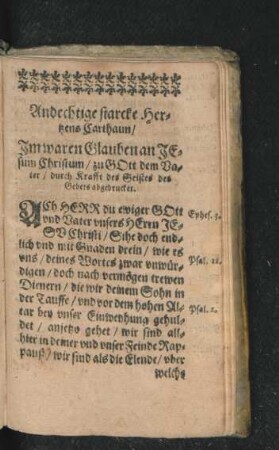 Andechtige starcke Her-
tzens Carthaun/
Im waren Glauben an JE-
sum Christum/ zu GOtt dem Va-
ter/ durch Krafft des Geistes des
Gebets abgedrucket.
ACh HERR du ewiger GOtt
vnd Vater vnsers HErrn JE-
SV Christi/ Sihe doch end-
lich vnd mit Gnaden drein/ wie es
vns/ deines Wortes zwar vnwür-
digen/ doch nach vermögen trewen
Dienern/ die wir deinem Sohn in
der Tauffe/ vnd vor dem hohen Al-
tar bey vnser Einweyhung gehul-
det/ anjetzo gehet/ wir sind all-
hier in deiner vnd vnser Feinde Rap-
pauß/ wir sind als die Elende/ vber
welche
Ephes. 3.
Psal. 12.
Psal. 2.